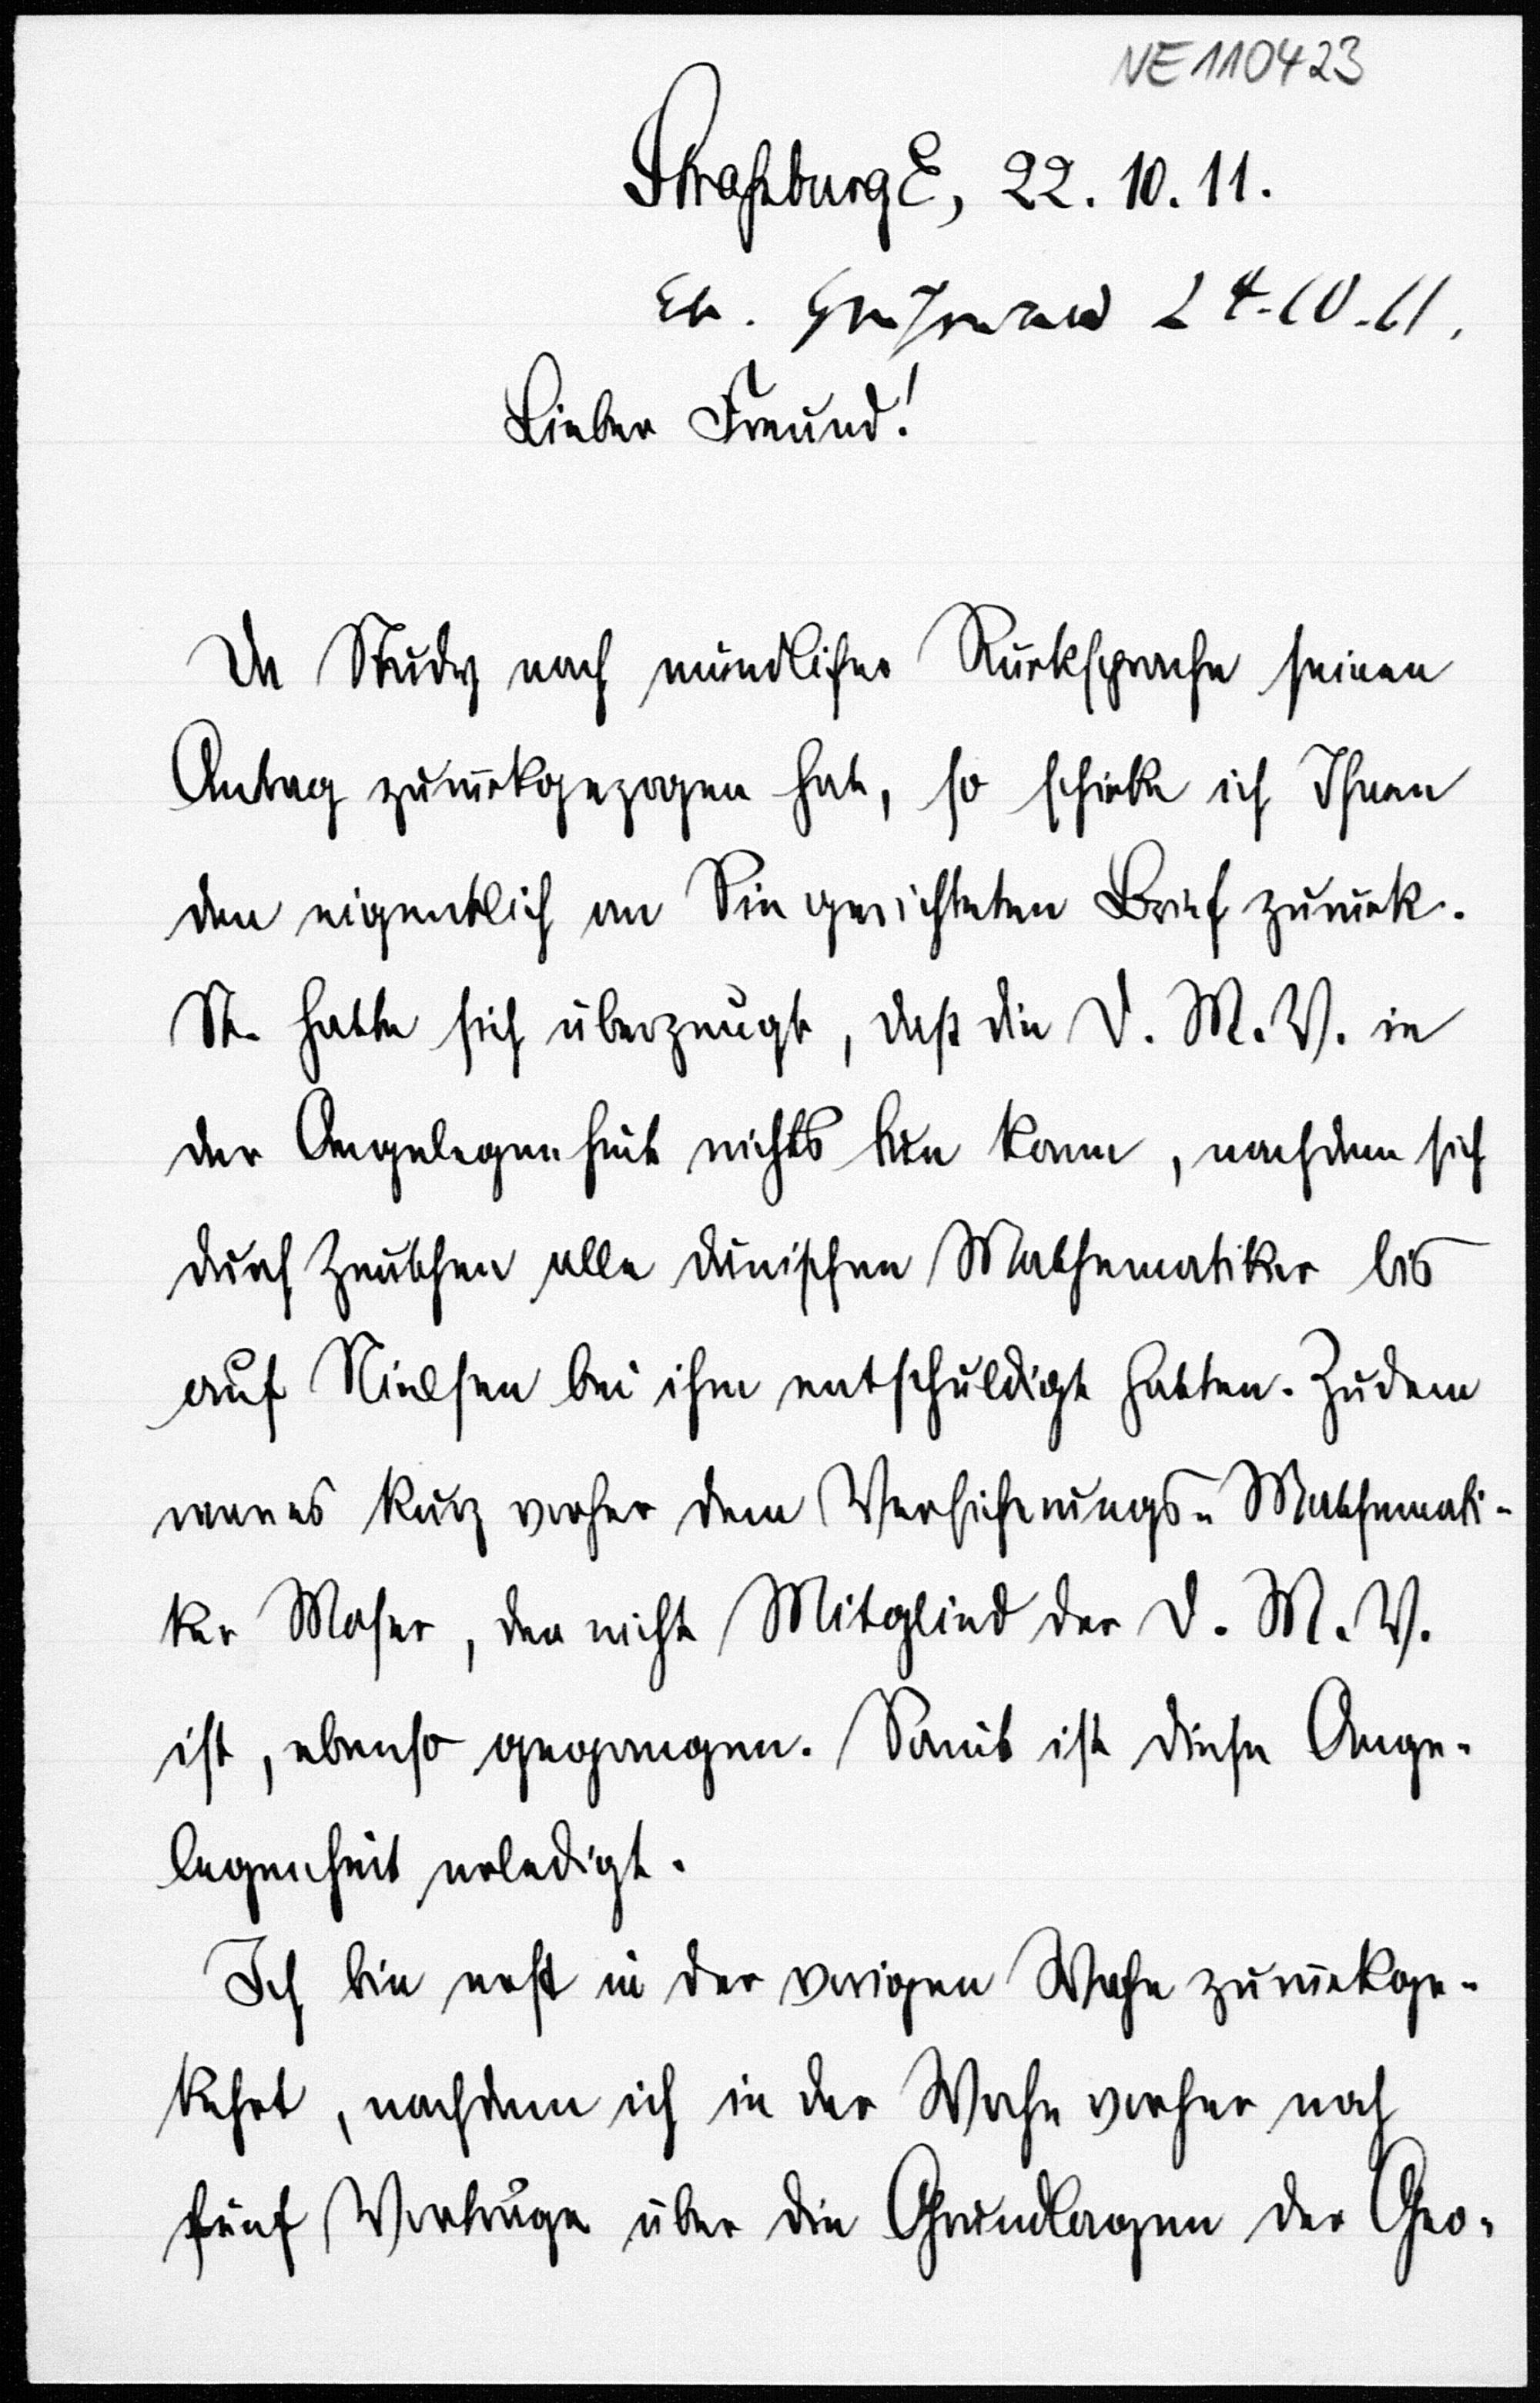 NE110423
Straßburg E, 22. 10. 11.
Eh. Greifswald 24.10.11.
Lieber Freund!
Da Study nach mündlicher Rücksprache seinen
Antrag zurückgezogen hat, so schicke ich Ihnen
den eigentlich an Sie gerichteten Brief zurück.
St. hatte sich überzeugt, daß die D. M. V. in
der Angelegenheit nichts tun kann, nachdem sich
durch Zeuthen alle dänischen Mathematiker bis
auf Nielsen bei ihm entschuldigt hatten. Zudem
war es kurz vorher dem Versicherungs-Mathemati-
ker Moser, der nicht Mitglied der D. M. V.
ist, ebenso gegangen. Somit ist diese Ange-
legenheit erledigt.
Ich bin erst in der vorigen Woche zurückge-
kehrt, nachdem ich in der Woche vorher noch
fünf Vorträge über die Grundlagen der Geo-